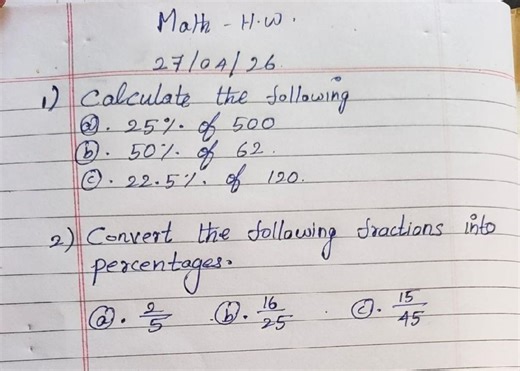 Math - H.W.
27/04/26.
1) Calculate the following
(a). 25% of 500
(b). 50% of 62.
(c). 22.5% of 120.
2) Convert the following fractions into
percentages.
(a). 2/5 (b). 16/25 (c). 15/45